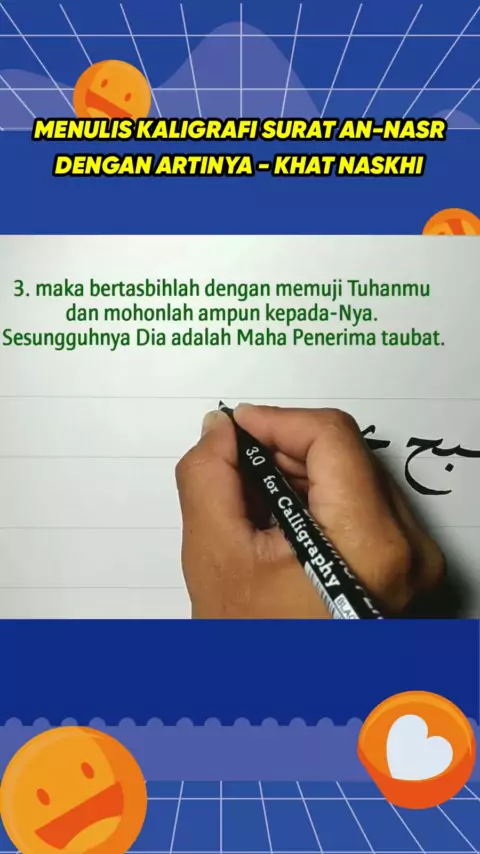 MENULIS KALIGRAFI SURAT AN-NASR
DENGAN ARTINYA - KHAT NASKHI
3. maka bertasbihlah dengan memuji Tuhanmu
dan mohonlah ampun kepada-Nya.
Sesungguhnya Dia adalah Maha Penerima taubat.
3.0 for Calligraphy